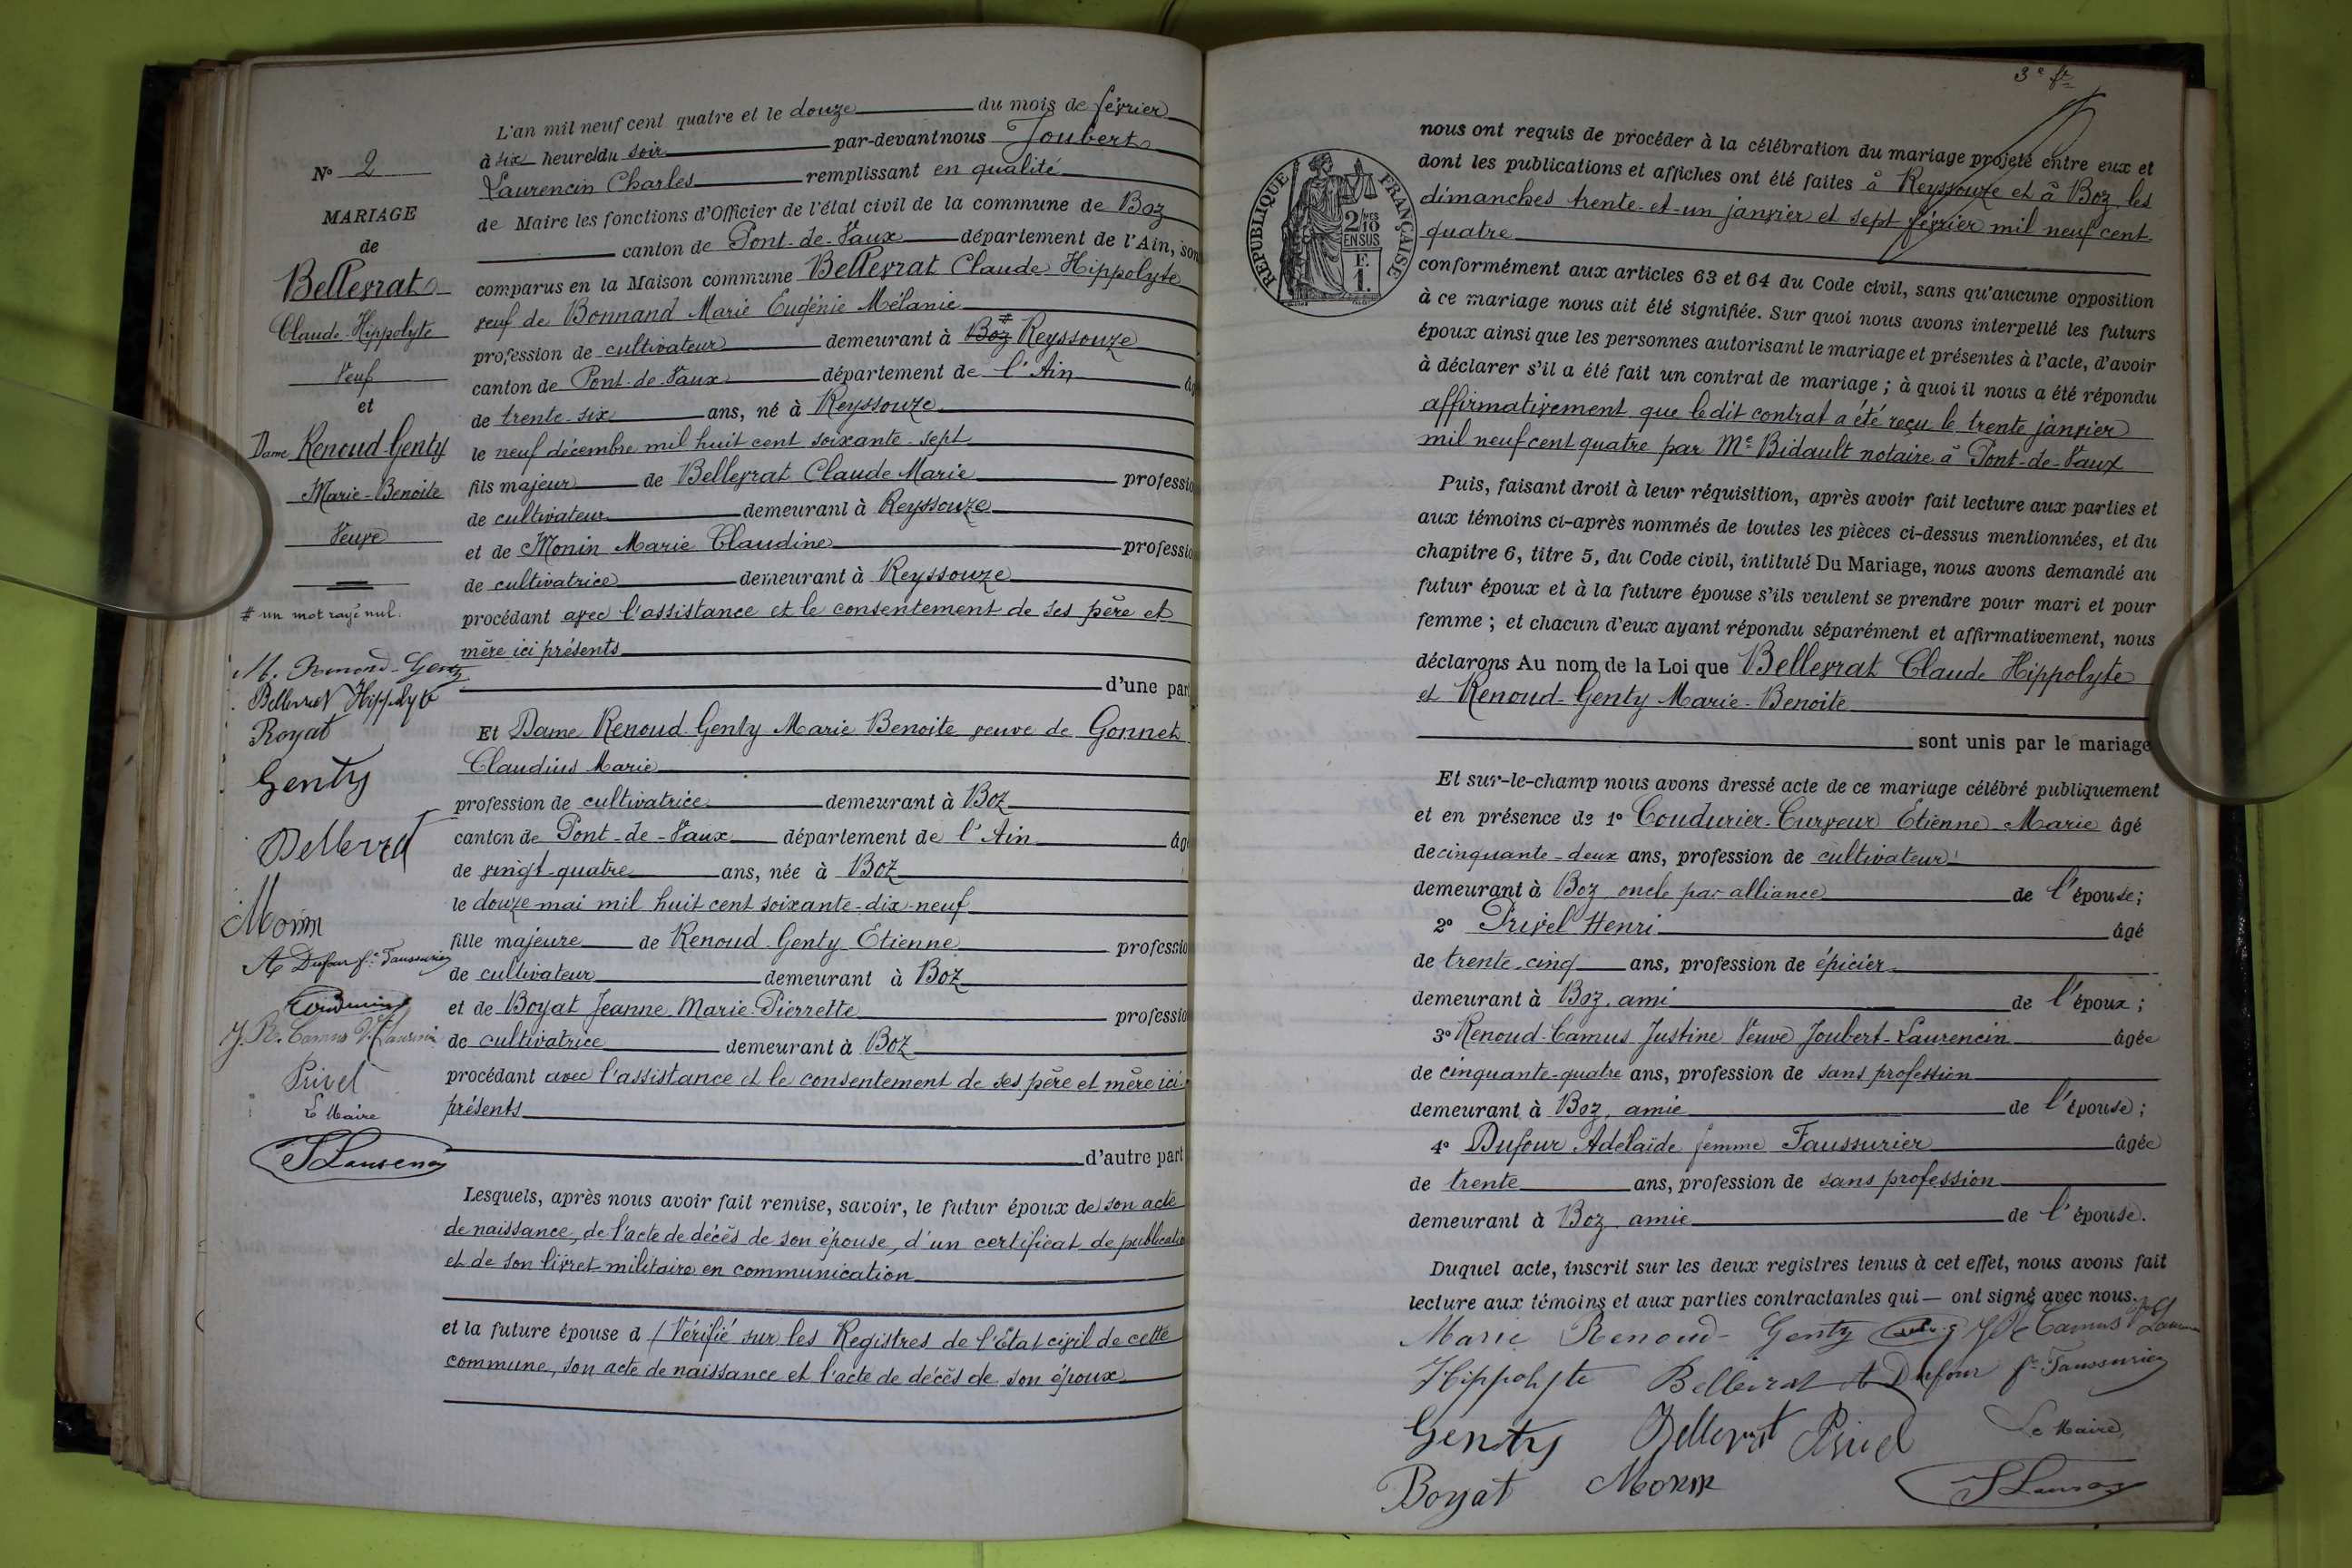 N° 2
MARIAGE
de
Belleyrat
Claude-Hippolyte
Veuf
et
Dame Renoud-Genty
Marie-Benoite
Veuve
# un mot rayé nul.
M. Renoud-Genty
Belleyrat Hippolyte
Boyat
Genty
Belleyrat
Monin
A Dufour fe Faussurier
J. Re. Camus Ve Laurencin
Privel
Le Maire
L'an mil neuf cent quatre et le douze du mois de février
à six heures du soir par-devant nous Joubert
Laurencin Charles remplissant en qualité
de Maire les fonctions d'Officier de l'état civil de la commune de Boz
canton de Pont-de-Vaux département de l'Ain, son
comparus en la Maison commune Belleyrat Claude Hippolyte
veuf de Bonnand Marie Eugénie Mélanie
profession de cultivateur demeurant à Boz # Reyssouze
canton de Pont-de-Vaux département de l'Ain âg
de trente-six ans, né à Reyssouze
le neuf décembre mil huit cent soixante-sept
fils majeur de Belleyrat Claude Marie professio
de cultivateur demeurant à Reyssouze
et de Monin Marie Claudine professio
de cultivatrice demeurant à Reyssouze
procédant avec l'assistance et le consentement de ses père et
mère ici présents
d'une par
Et Dame Renoud Genty Marie Benoite veuve de Gonnet
Claudius Marie
profession de cultivatrice demeurant à Boz
canton de Pont-de-Vaux département de l'Ain âg
de vingt-quatre ans, née à Boz
le douze mai mil huit cent soixante-dix-neuf
fille majeure de Renoud-Genty Etienne professio
de cultivateur demeurant à Boz
et de Boyat Jeanne Marie-Pierrette professio
de cultivatrice demeurant à Boz
procédant avec l'assistance et le consentement de ses père et mère ici
présents
d'autre part
Lesquels, après nous avoir fait remise, savoir, le futur époux de son acte
de naissance, de l'acte de décès de son épouse, d'un certificat de publicatio
et de son livret militaire en communication
et la future épouse a Vérifié sur les Registres de l'Etat civil de cette
commune, son acte de naissance et l'acte de décès de son époux
3e ft
RÉPUBLIQUE FRANÇAISE
2/10es
EN SUS
F.
1.
nous ont requis de procéder à la célébration du mariage projeté entre eux et
dont les publications et affiches ont été faites à Reyssouze et à Boz les
dimanches trente-et-un janvier et sept février mil neuf cent
quatre
conformément aux articles 63 et 64 du Code civil, sans qu'aucune opposition
à ce mariage nous ait été signifiée. Sur quoi nous avons interpellé les futurs
époux ainsi que les personnes autorisant le mariage et présentes à l'acte, d'avoir
à déclarer s'il a été fait un contrat de mariage ; à quoi il nous a été répondu
affirmativement que le dit contrat a été reçu le trente janvier
mil neuf cent quatre par Me Bidault notaire à Pont-de-Vaux
Puis, faisant droit à leur réquisition, après avoir fait lecture aux parties et
aux témoins ci-après nommés de toutes les pièces ci-dessus mentionnées, et du
chapitre 6, titre 5, du Code civil, intitulé Du Mariage, nous avons demandé au
futur époux et à la future épouse s'ils veulent se prendre pour mari et pour
femme ; et chacun d'eux ayant répondu séparément et affirmativement, nous
déclarons Au nom de la Loi que Belleyrat Claude Hippolyte
et Renoud-Genty Marie-Benoite
sont unis par le mariage
Et sur-le-champ nous avons dressé acte de ce mariage célébré publiquement
et en présence de 1° Coudurier-Curveur Etienne Marie âgé
de cinquante-deux ans, profession de cultivateur
demeurant à Boz oncle par alliance de l'épouse ;
2° Privel Henri âgé
de trente-cinq ans, profession de épicier
demeurant à Boz, ami de l'époux ;
3° Renoud-Camus Justine Veuve Joubert-Laurencin âgée
de cinquante-quatre ans, profession de sans profession
demeurant à Boz, amie de l'épouse ;
4° Dufour Adélaïde femme Faussurier âgée
de trente ans, profession de sans profession
demeurant à Boz amie de l'épouse.
Duquel acte, inscrit sur les deux registres tenus à cet effet, nous avons fait
lecture aux témoins et aux parties contractantes qui — ont signé avec nous.
Marie Renoud-Genty J Re Camus Ve
Hippolyte Belleyrat A Dufour fe Faussurier
Genty Belleyrat Privel Le Maire,
Boyat Monin